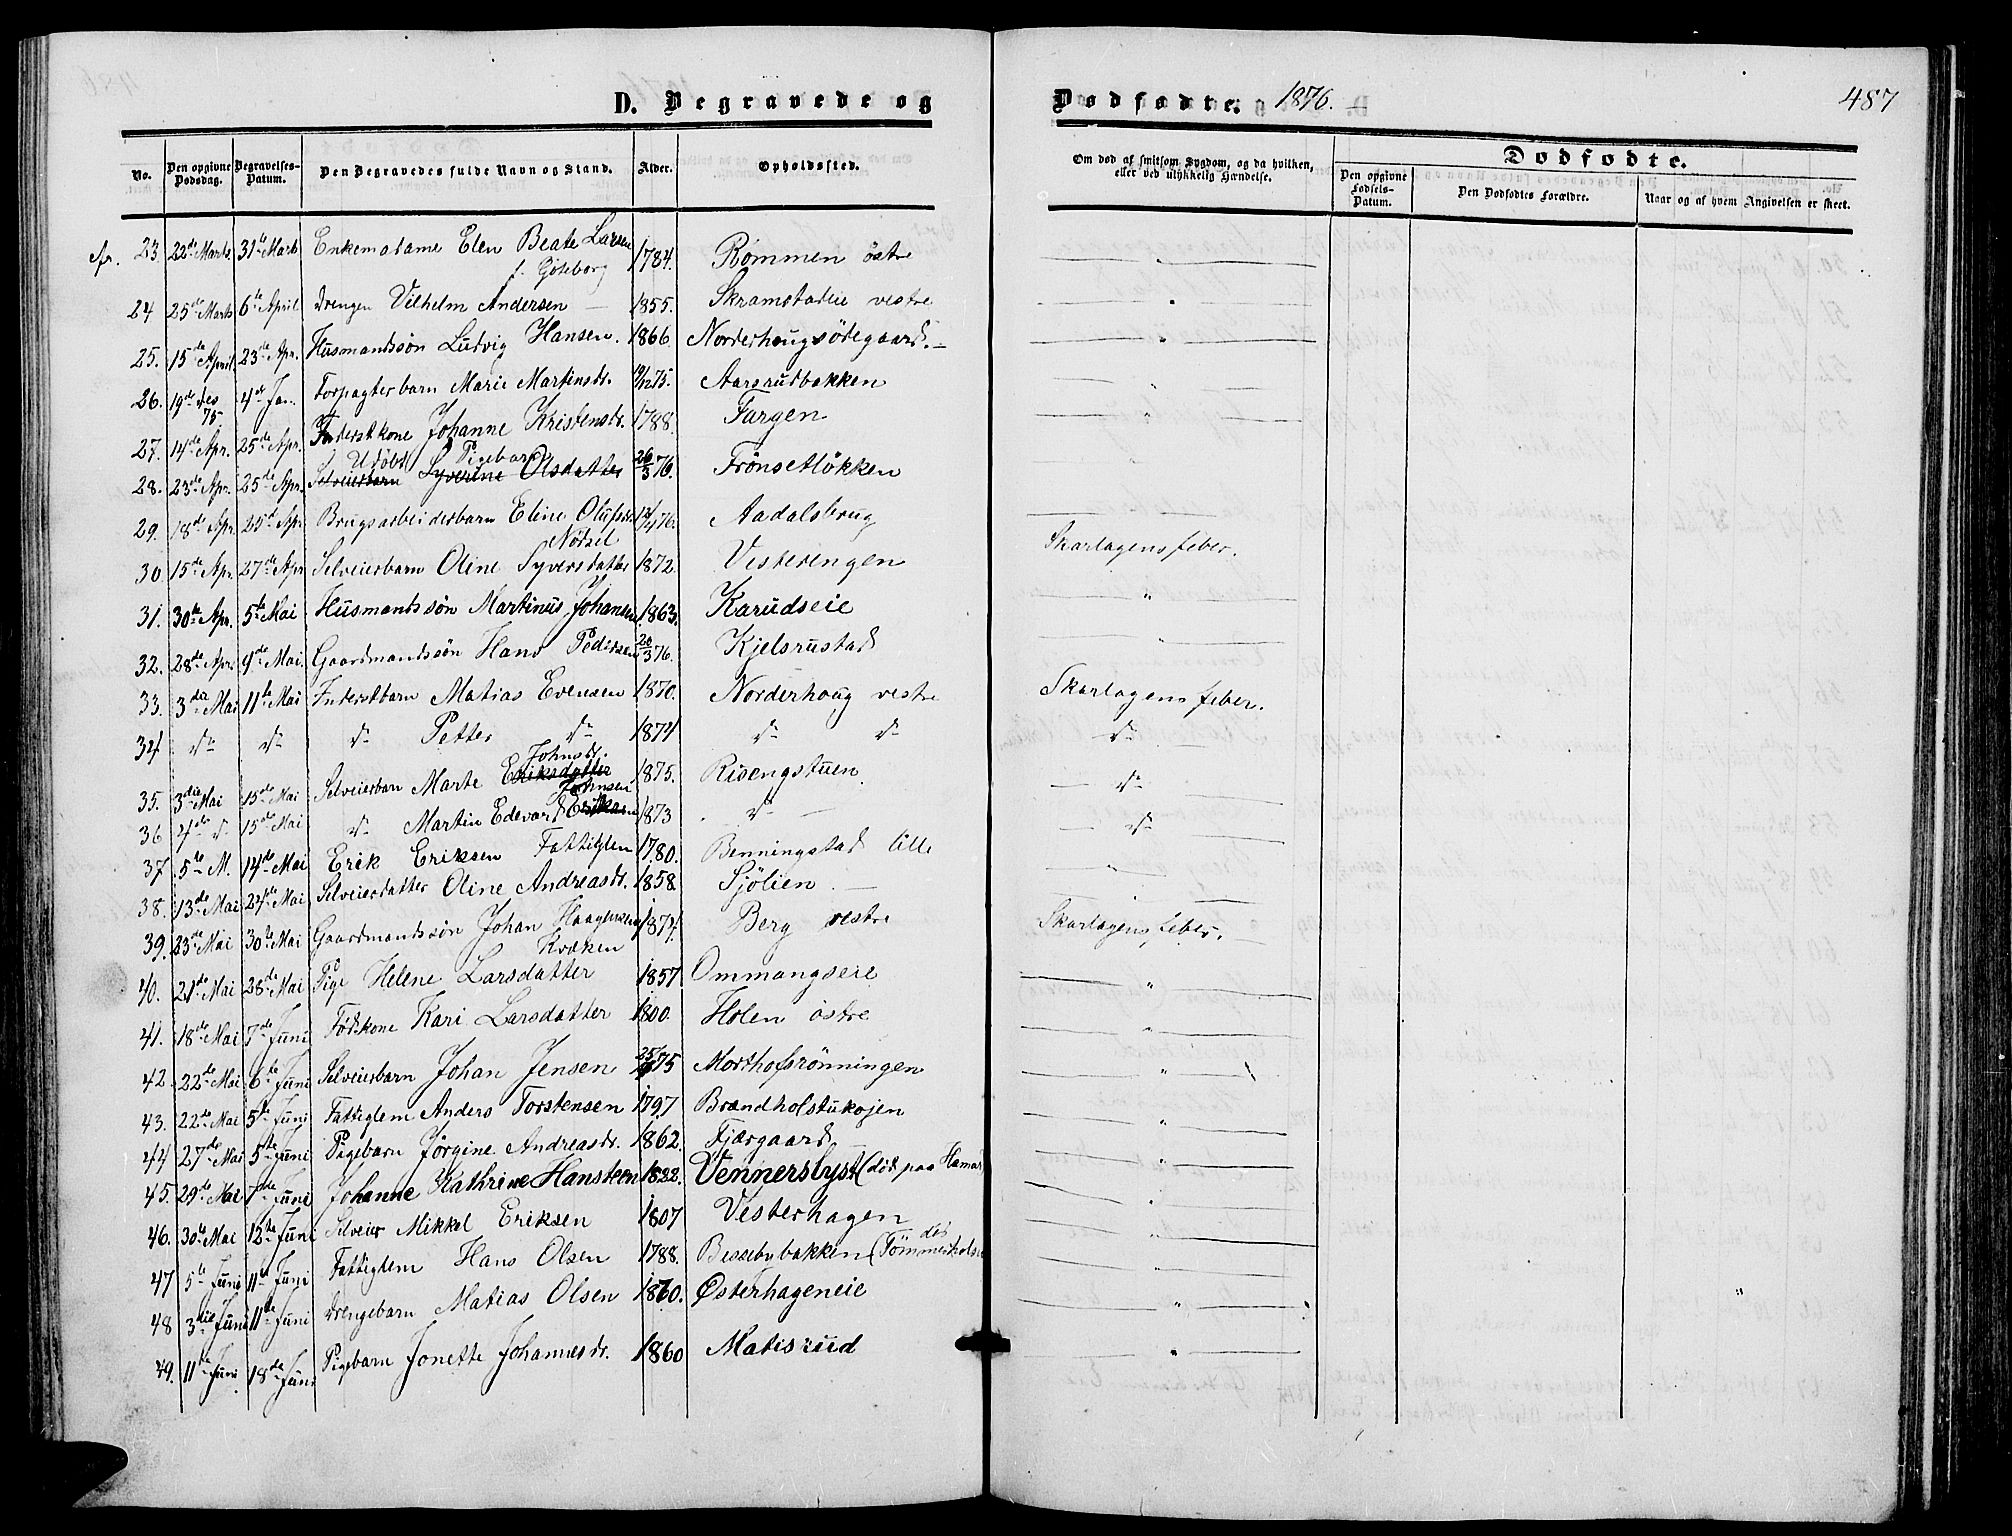 D. Begravede og Dødfødte. 1876. 487
No. Den opgivne Dødsdag. Begravelses-Datum. Den Begravedes fulde Navn og Stand. Alder. Opholdssted. Om død af smitsom Sygdom, og da hvilken, eller ved ulykkelig Hændelse. Dødfødte. Den opgivne Fødsels-Datum. Den Dødfødtes Forældre. Naar og af hvem Angivelsen er skeet.
23 22de Marts 31te Marts Enkemadame Elen Beate Larsen 1784. Rommen östre "
f. Göteborg
24 25de Marts 6te April Drengen Vilhelm Andersen 1855. Skramstadeie vestre "
25. 15de April 23de Apr. Husmandssön Ludvig Hansen. 1866. Norderhougsödegaard. "
26. 19de Des 75 4de Jan. Forpagterbarn Marie Martinsdr. 19/12 75. Aarsrudbakken "
27. 14de Apr. 25de Apr. Inderstkone Johanne Kristensdr. 1788. Fargen "
Udöbt Pigebarn
28. 23de Apr. 25de Apr. Selveierbarn Syverine Olsdatter 26/3 76. Frönsetlökken "
29. 18de Apr 25de Apr Brugsarbeiderbarn Eline Olufsdr. 12/4 76. Aadalsbrug
Nötsel
30 15de Apr. 27de Apr Selveierbarn Oline Syversdatter 1872. Vesterengen Skarlagensfeber.
31. 30te Apr. 5te Mai Husmandssön Martinus Johansen 1863. Karudseie "
32. 28de Apr. 9de Mai. Gaardmandssön Hans Pedersen 20/3 76. Kjelsrustad "
33. 3die Mai 11te Mai Inderstbarn Matias Evensen 1870. Norderhoug vestre Skarlagensfeber.
34 do do do Petter do 1874 do do do
Johnsdr.
35. 3die Mai 15de Mai Selveierbarn Marte Eriksdatter 1875. Risengstuen do
Johnsen
36 4de do 15de Mai do Martin Edevard Eriksen 1873 do do
37 5te M. 14de Mai Erik Eriksen Fattiglem 1780. Benningstad lille
38. 13de Mai 24de Mai Selveierdatter Oline Andreasdr. 1858. Sjölien. "
39. 23de Mai 30te Mai Gaardmandssön Johan Haagensen 1874. Berg vestre Skarlagensfeber.
Kveken
40. 21de Mai 28de Mai Pige Helene Larsdatter 1857 Ommangseie "
41. 18de Mai 7de Juni Födskone Kari Larsdatter 1800. Holen östre "
42. 22de Mai 6te Juni Selveierbarn Johan Jensen 75 Morthofsrönningen "
43. 22de Mai 5te Juni Fattiglem Anders Torstensen 1797 Brændholstukojen "
44 27de Mai 5te Juni Pigebarn Jørgine Andreasdr. 1862. Fjærgaard "
45. 29de Mai 7de Juni Johanne Kathrine Hansteen 1822. Vennerslyst (död paa Hamar) "
46. 30te Mai 12te Juni Selveier Mikkel Eriksen 1807 Vesterhagen "
47 5te Juni 11te Juni Fattiglem Hans Olsen 1788. Bessebybakken "
48 3die Juni 11te Juni Drengebarn Matias Olsen 1860. Østerhageneie "
49. 11te Juni 18de Juni Pigebarn Jonette Johannesdr. 1860 Matisrud "